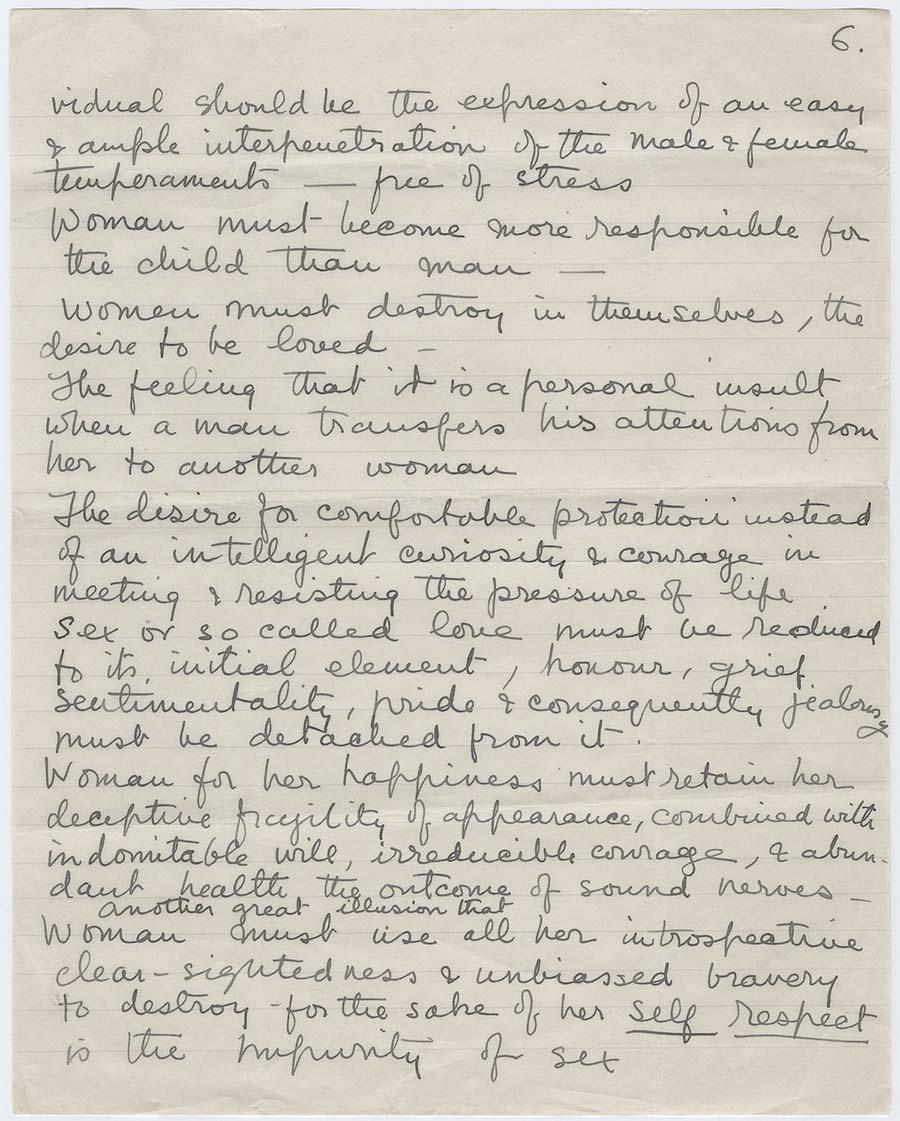 6.
vidual should be the expression of an easy
& ample interpenetration of the male & female
temperaments — free of stress
Woman must become more responsible for
the child than man —
Women must destroy in themselves, the
desire to be loved —
The feeling that it is a personal insult
when a man transfers his attentions from
her to another woman
The desire for comfortable protection instead
of an intelligent curiosity & courage in
meeting & resisting the pressure of life
Sex or so called love must be reduced
to its initial element, honour, grief,
sentimentality, pride & consequently jealousy
must be detached from it.
Woman for her happiness must retain her
deceptive fragility of appearance, combined with
indomitable will, irreducible courage, & abun-
dant health the outcome of sound nerves —
another great illusion that
Woman must use all her introspective
clear-sightedness & unbiassed bravery
to destroy - for the sake of her self respect
is the impurity of sex